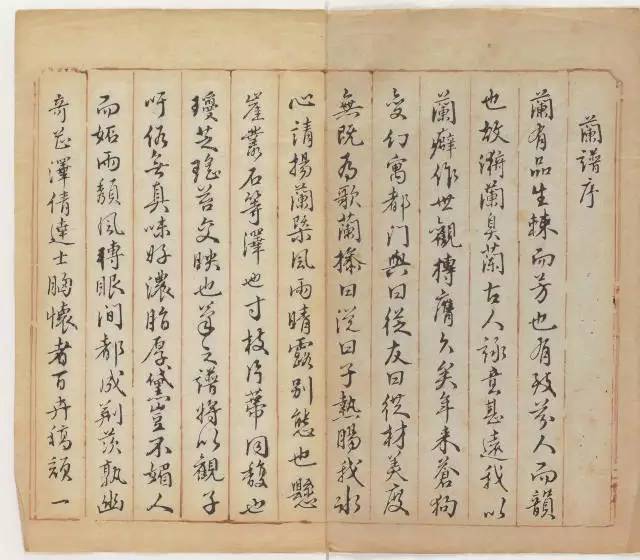 蘭譜序
蘭有品生棘而芳也有致芬人而韻
也故漪蘭臭蘭古人詠意甚遠我以
蘭癖作世觀摶膺久矣年来蒼狗
变幻寓都門與曰從友曰從材美度
無既為歌蘭操曰從曰子熱腸我冰
心請揚蘭槩風雨晴露別態也懸
崖叢石等澤也寸枝片蒂同馥也
瓊芝瑤苔交映也筆之譜将以觀子
吁俗無真味好濃脂厚黛豈不媚人
而妬雨顛風轉眼间都成荆茨孰幽
奇芷澤倩達士胸懷者百卉稿顏一